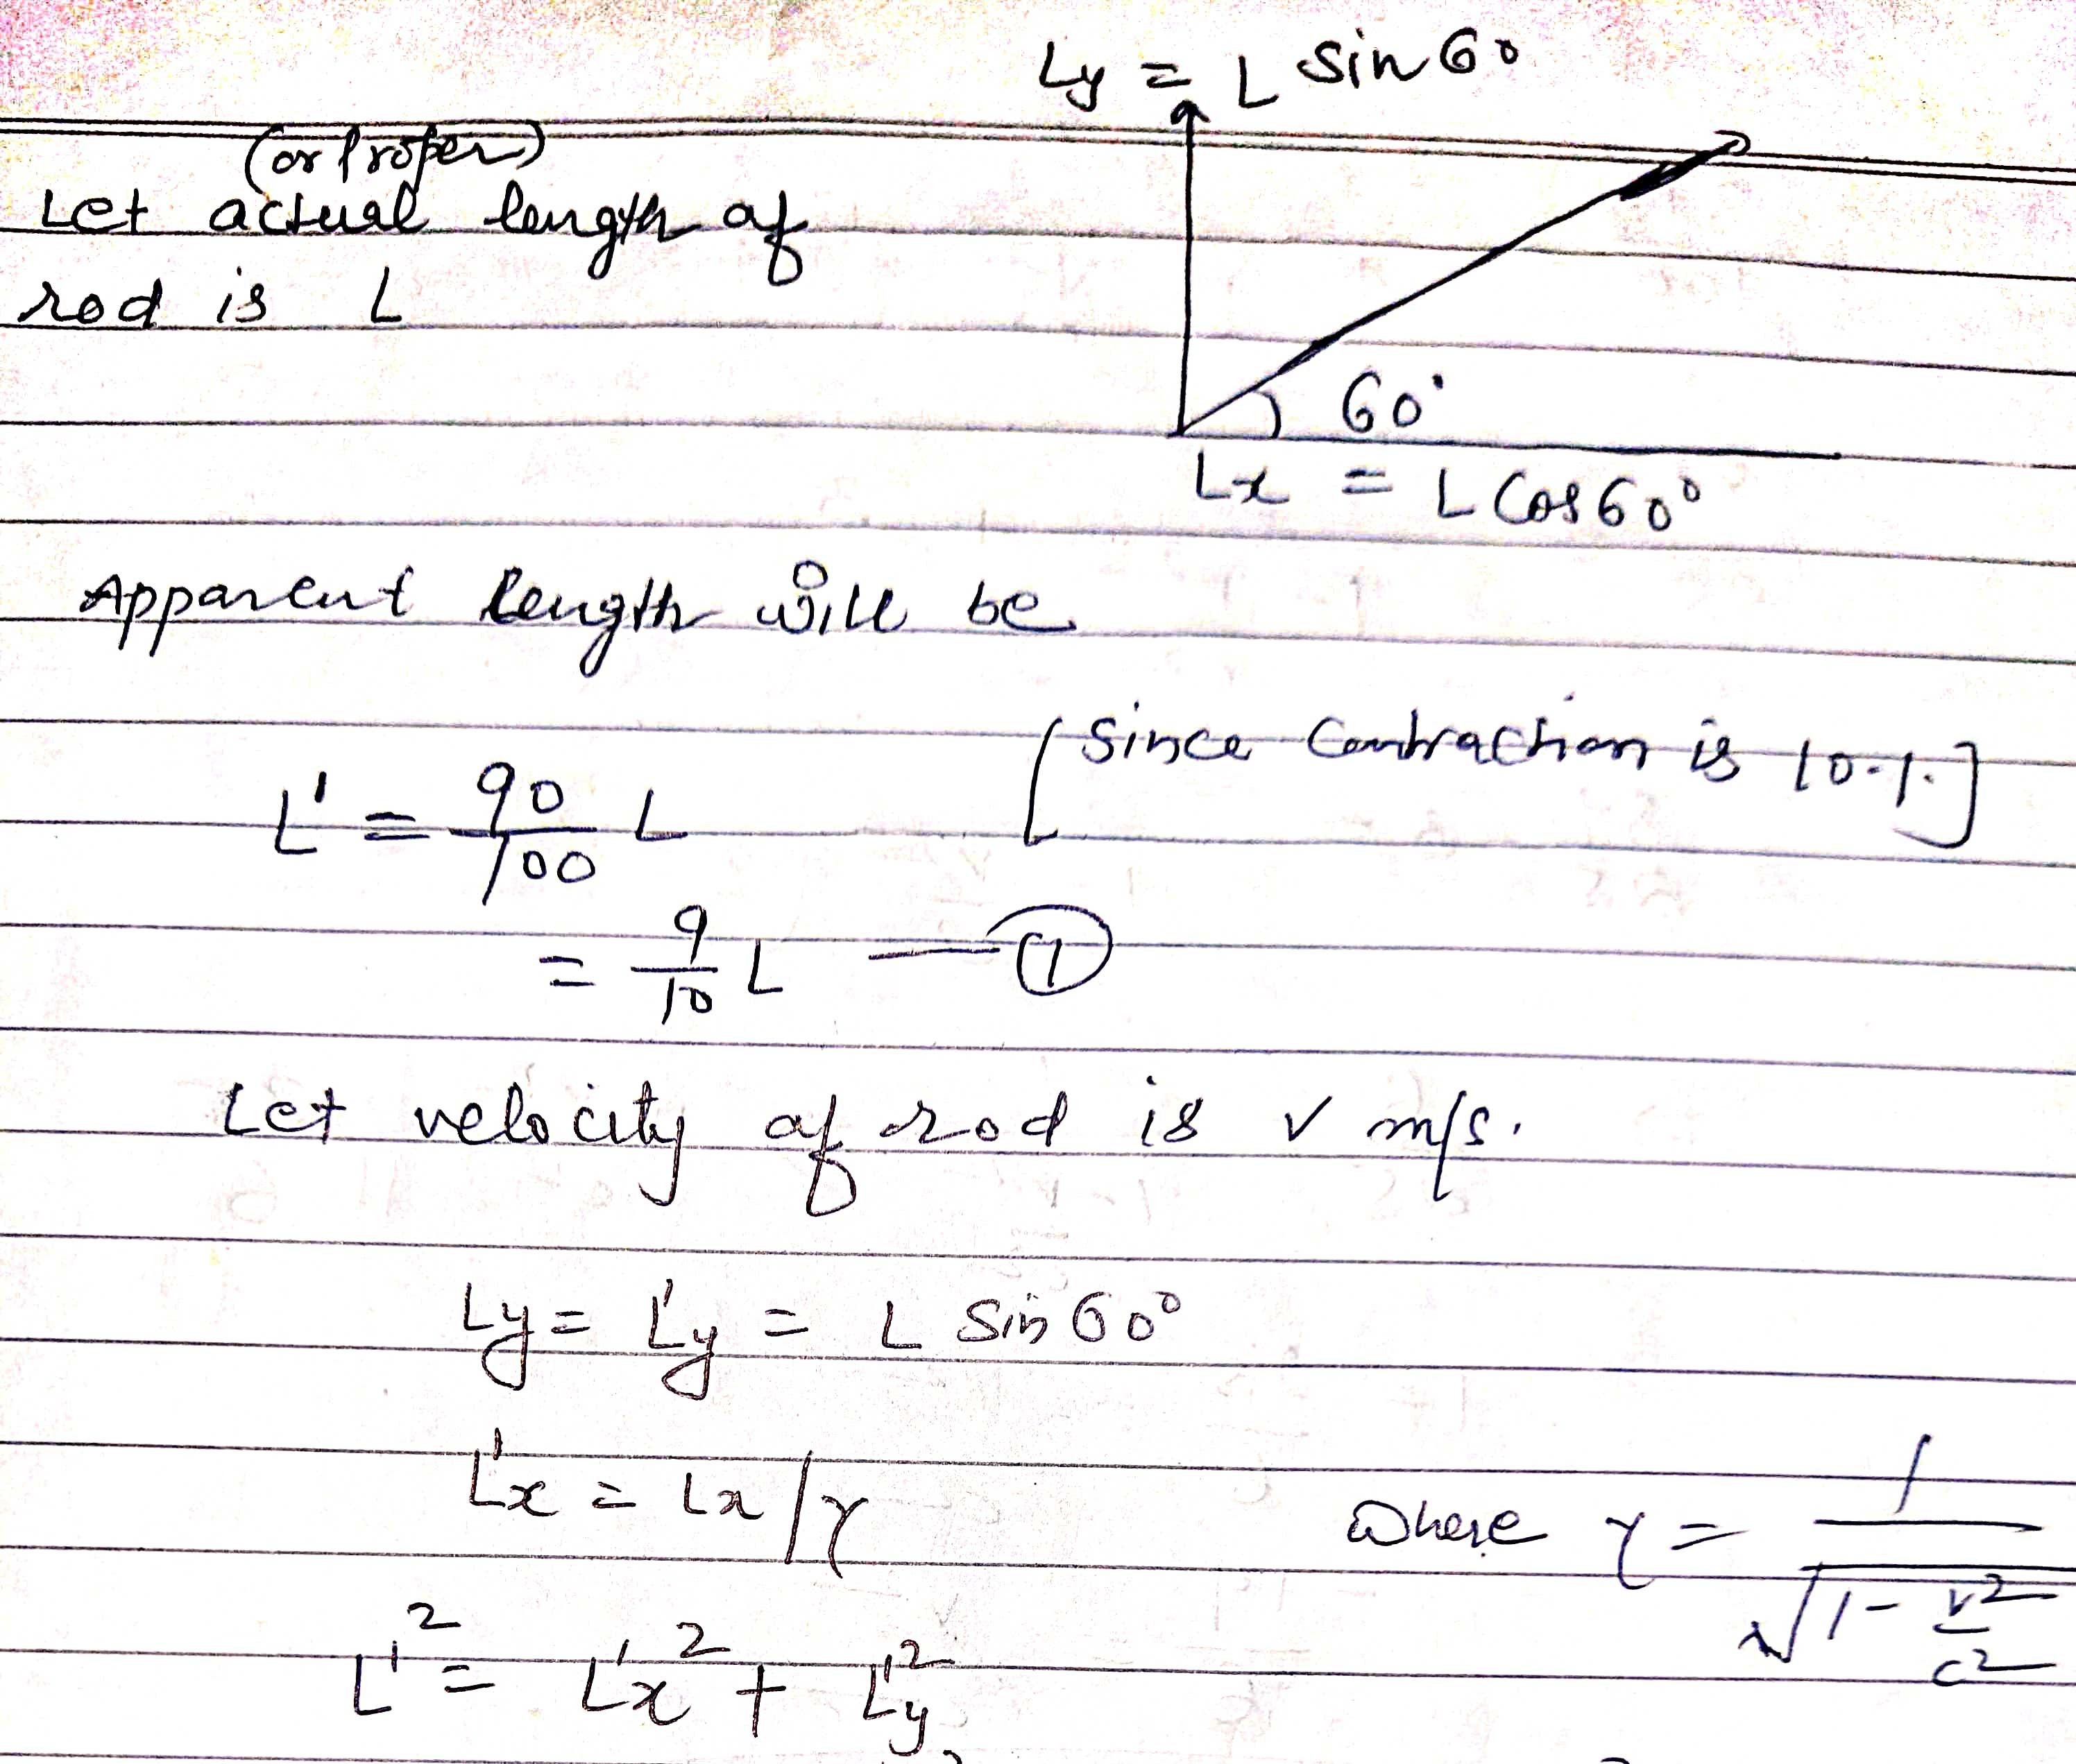 Ly = L Sin 60
(or Proper)
Let actual length of
rod is L
60°
Lx = L Cos 60°
Apparent length will be
L' = 90/100 L [Since Contraction is 10%]
= 9/10 L — ①
Let velocity of rod is v m/s.
Ly = L'y = L Sin 60°
L'x = Lx/γ where γ = 1/√(1 - v²/c²)
L'² = L'x² + L'y²